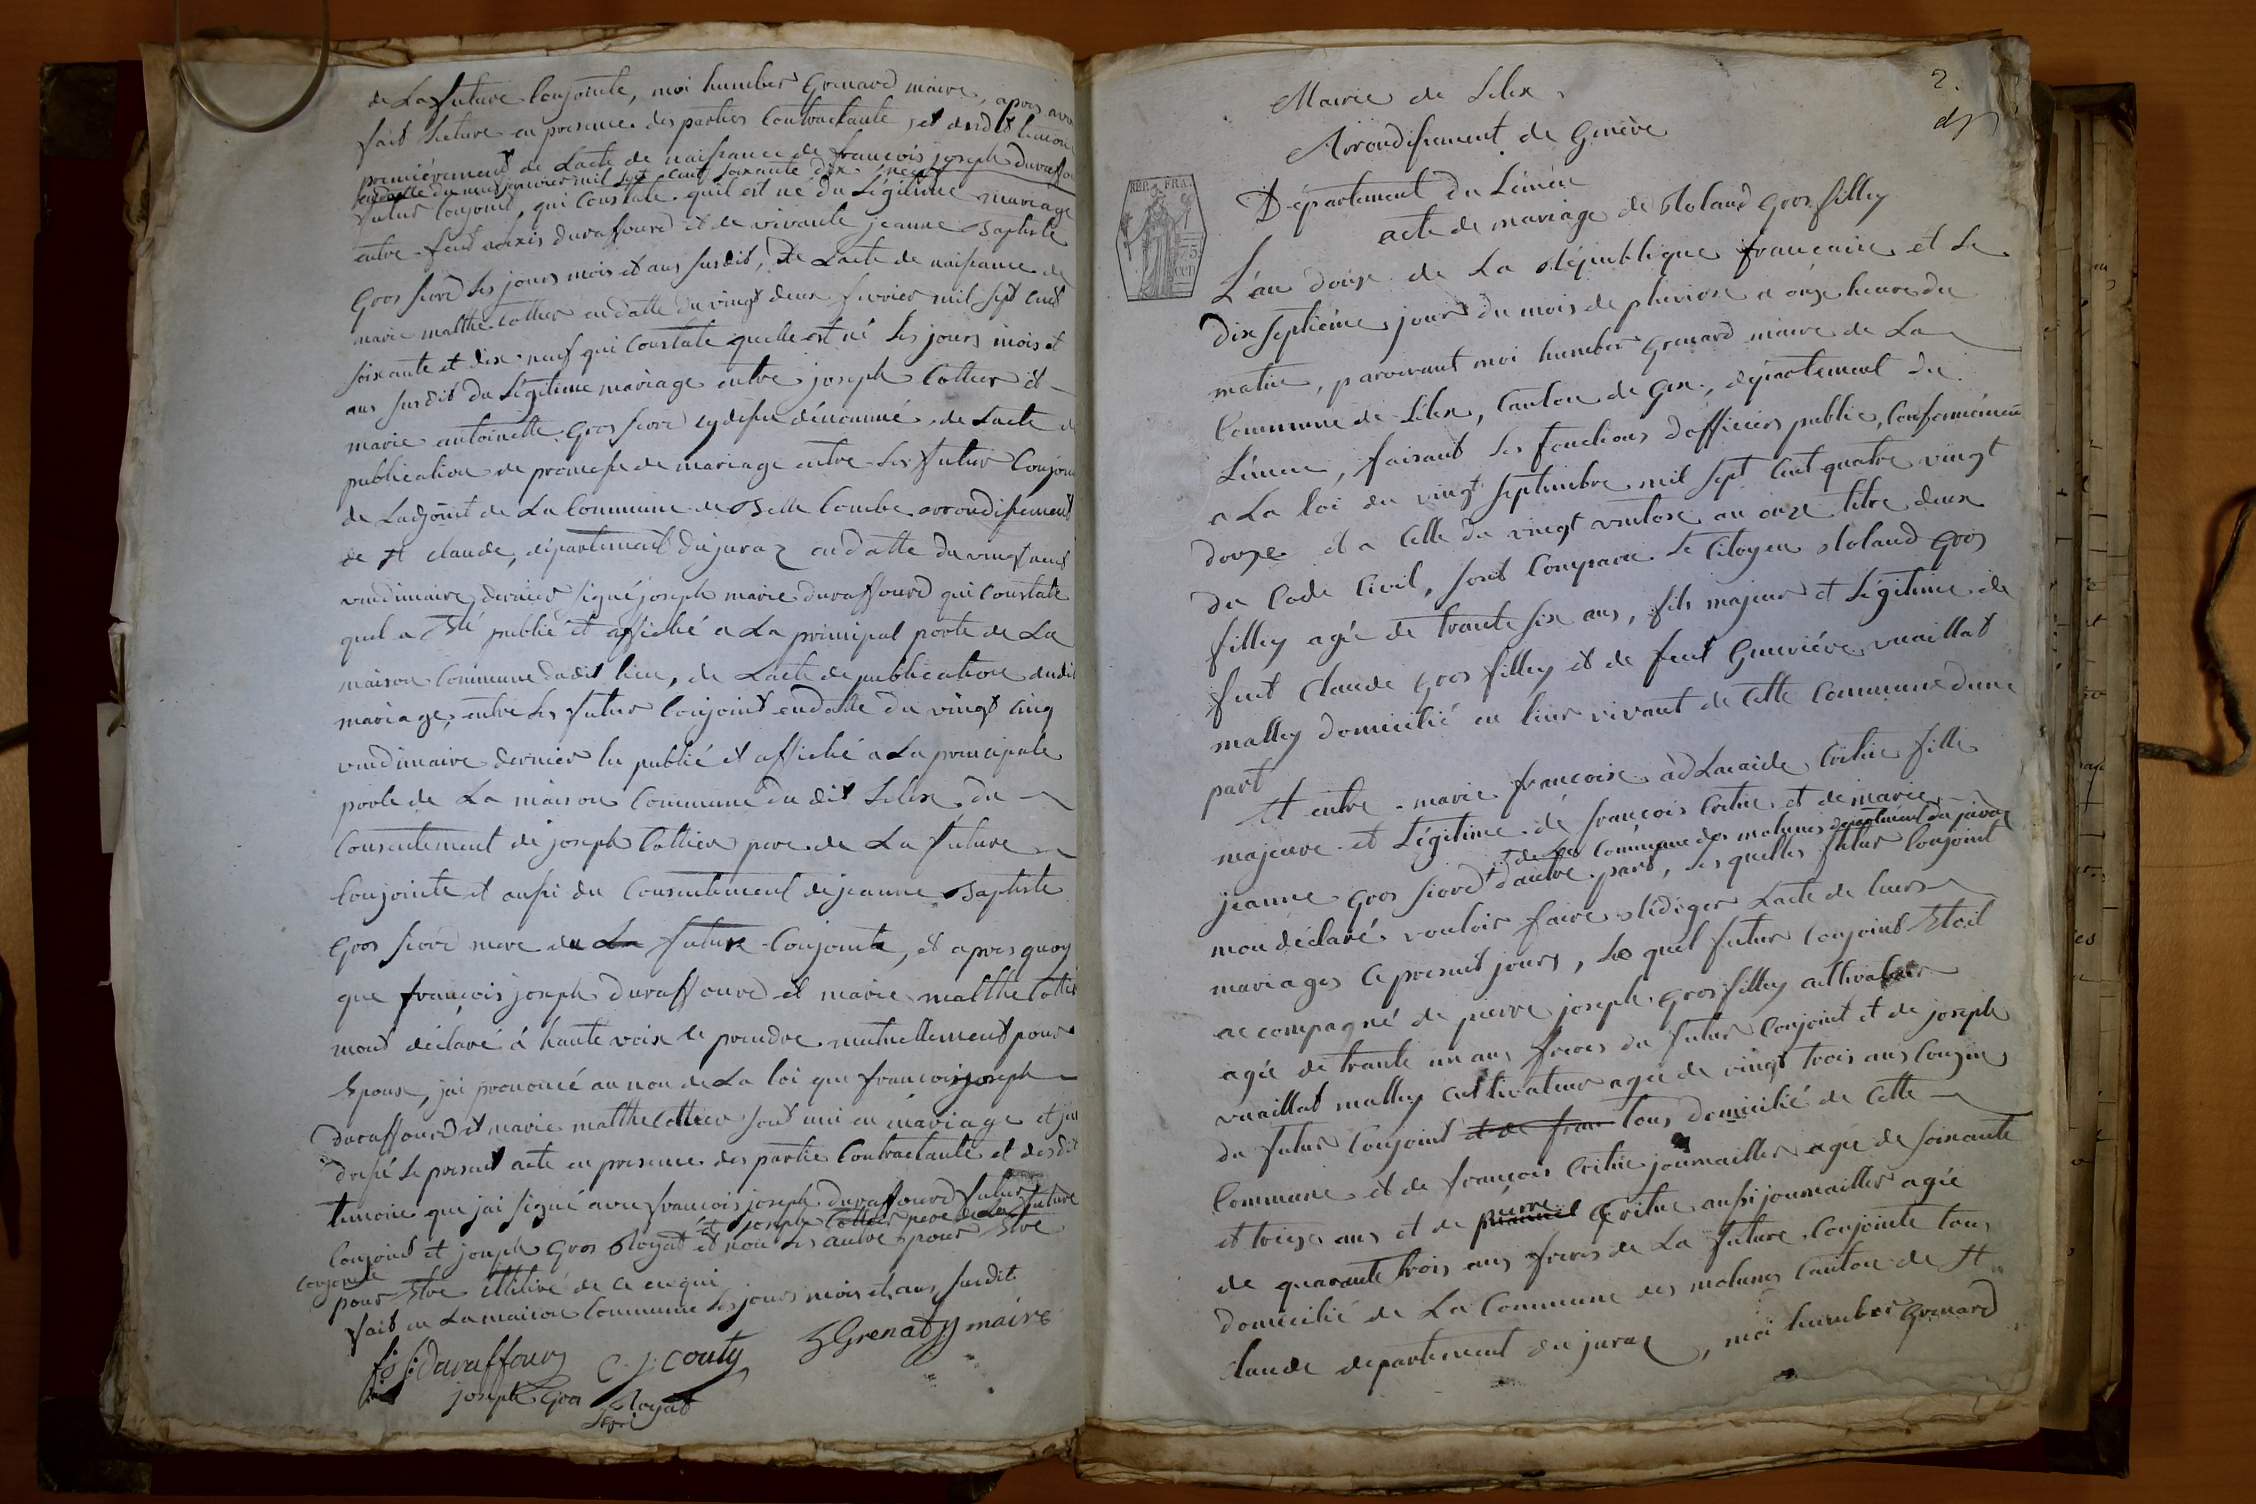 de La future Conjointe, moi humber Grenard maire, apres avoir
fait lecture en presence des parties Contractante, et desdit temoins
premiérement de Lacte de naissance de francois joseph duraffourd
endatte du neuf janvier mil sept cent soixante dix neuf
futur Conjoint, qui Constate quil est né du Légitime mariage
entre feut alexis duraffourd et de vivante jeanne Baptiste
Gros fiord les jours mois et ans susdit, De Lacte de naissance de
marie malthe Cottier endatte du vingt deux fevrier mil sept cent
soixante et dix neuf qui Constate quelle est né les jours mois et
ans susdit du Légitime mariage entre joseph Cottier et
marie antoinette Gros fiord cy desus dénommé, de Lacte de
publication de promesse de mariage entre les futur Conjoint
de Ladjoint de La Commune de Belle Combe arrondissement
de St Claude, département du jura endatte du vingt neuf
vendimaire dernier signé joseph marie duraffourd qui Constate
quel a Eté publié et affiché a La principal porte de La
maison Commune dudit lieu, de Lacte de publication dudit
mariage, entre les futur Conjoint endatte du vingt cinq
vendimaire dernier lu publié et affiché a La principale
porte de La maison Commune du dit Lelex, du
Consentement de joseph Cottier pere de La future
Conjointe et aussi du Consentement de jeanne Baptiste
Gros fiord mere du La future Conjointe, et apres quoy
que francois joseph duraffourd et marie malthe Cottier
mont déclaré à haute voix se prendre mutuellement pour
Epoux, jai prononcé au nom de La loi que francois joseph
duraffourd et marie malthe Cottier sont uni en mariage et jai
dressé le present acte en presence des partie Contractante et desdit
temoin que jai signé avec francois joseph duraffourd futur
et joseph Cottier pere de La future
Conjoint et joseph Gros Royat et non les autre pour Etre
Conjointe
pour Etre illitiré de ce enqui
fait en La maison Commune les jours mois et ans susdit
fs js: Duraffourg C. J. Couty h Grenard maire
joseph Gros Royat
2.
Mairie de Lelex,
Arrondissement de Genève
Département du Léman
REP. FRA.
75
CEN
acte de mariage de Roland Gros filley
L'an douze de La République francaise et le
dix septiéme jour du mois de pluviose a onze heure du
matin, pardevant moi humber Grenard maire de La
Commune de Lelex, Canton de Gex, département du
Léman, faisant les fonctions d'officier public, Conformément
a La loi du vingt septembre mil sept cent quatre vingt
douze et a Celle du vingt ventose an onze titre deux
du Code Civil, sont Comparu Le Citoyen Roland Gros
filley agée de trante six ans, fils majeur et Légitime de
feut Claude Gros filley et de feut Genevieve vuaillat
malley domicilié en leur vivant de Cette Commune dune
part
Et entre marie francoise adLaaide Critin fille
majeure et Légitime de francois Critin et de marie
de La Commune des molunes département du jura
jeanne Gros fiord d'autre part, les quelles futur Conjoint
mon déclaré vouloir faire Rédiger Lacte de leurs
mariages Ce present jours, Le quel futur Conjoint Etoit
accompagné de pierre joseph Gros filley cultivateur
agée de trante un ans freres du futur Conjoint et de joseph
vuaillat malley Cultivateur agée de vingt trois ans Cousin
du futur Conjoint et de fran tous domicilié de Cette
Commune et de francois Critin journallier agée de soixante
et treize ans et de pierre Critin aussi journallier agée
de quarante trois ans freres de La future Conjointe tous
domicilié de La Commune des molunes Canton de St
Claude departement du jura, moi humber Grenard